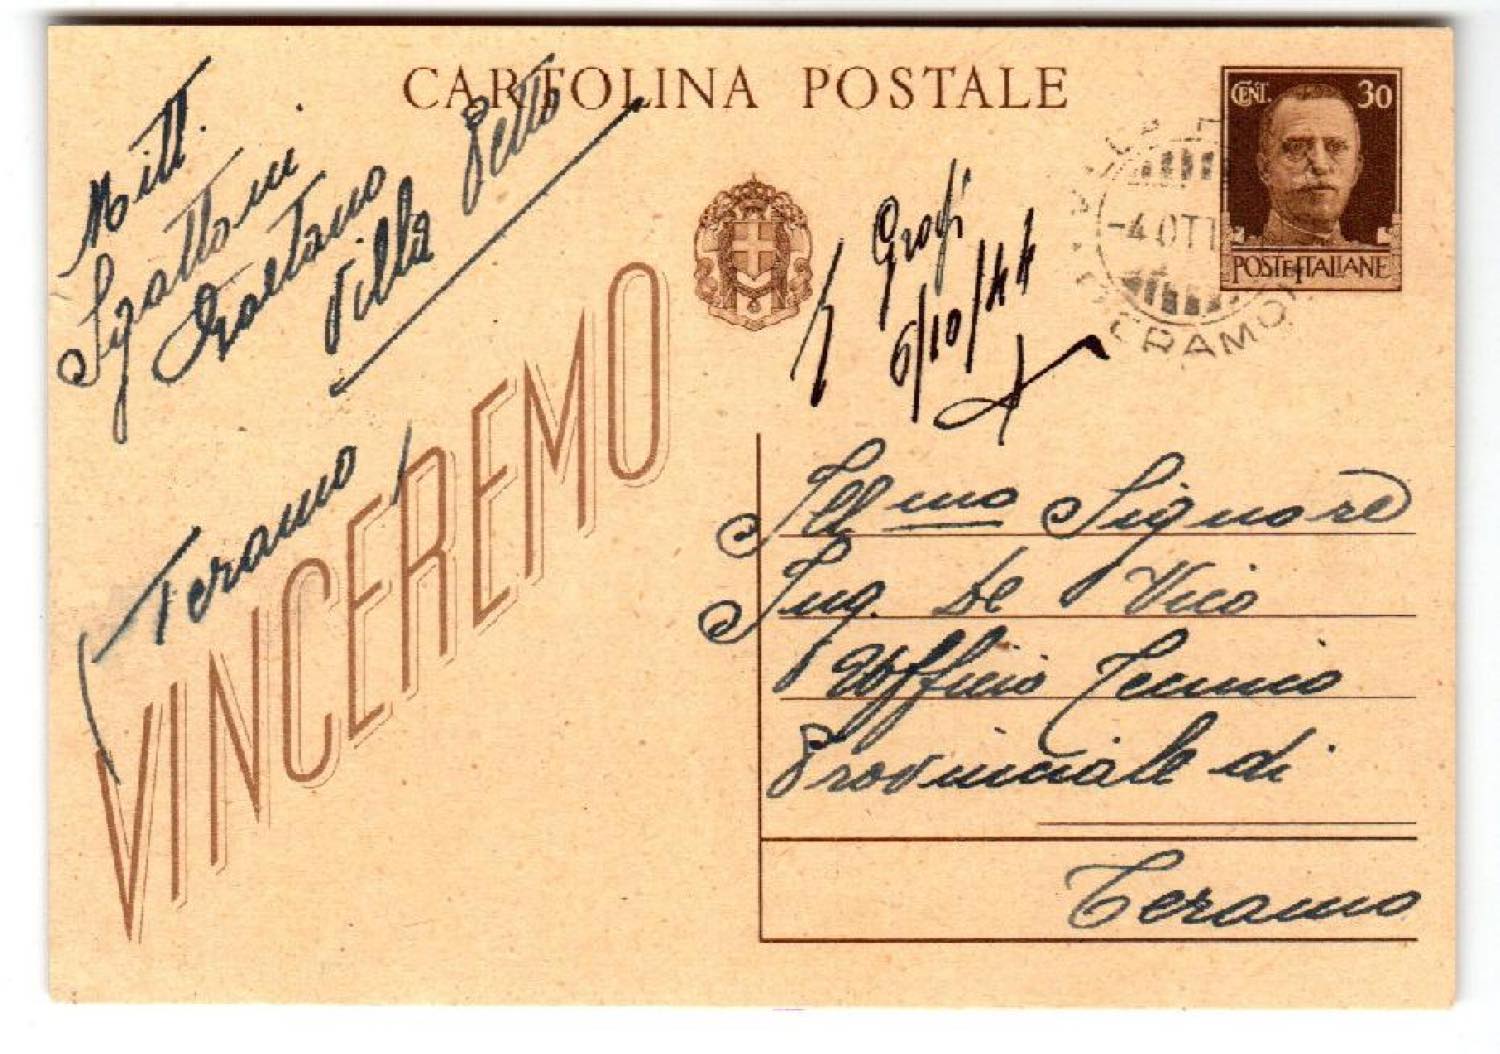 CARTOLINA POSTALE
CENT. 30
POSTE ITALIANE
-4 OTT
TERAMO
Mitt.
Sgattoni
Gaetano
Villa Petto
(Teramo)
VINCEREMO
6/10/44
Ill mo Signore
Ing. De Vico
Ufficio Tecnico
Provinciale di
Teramo